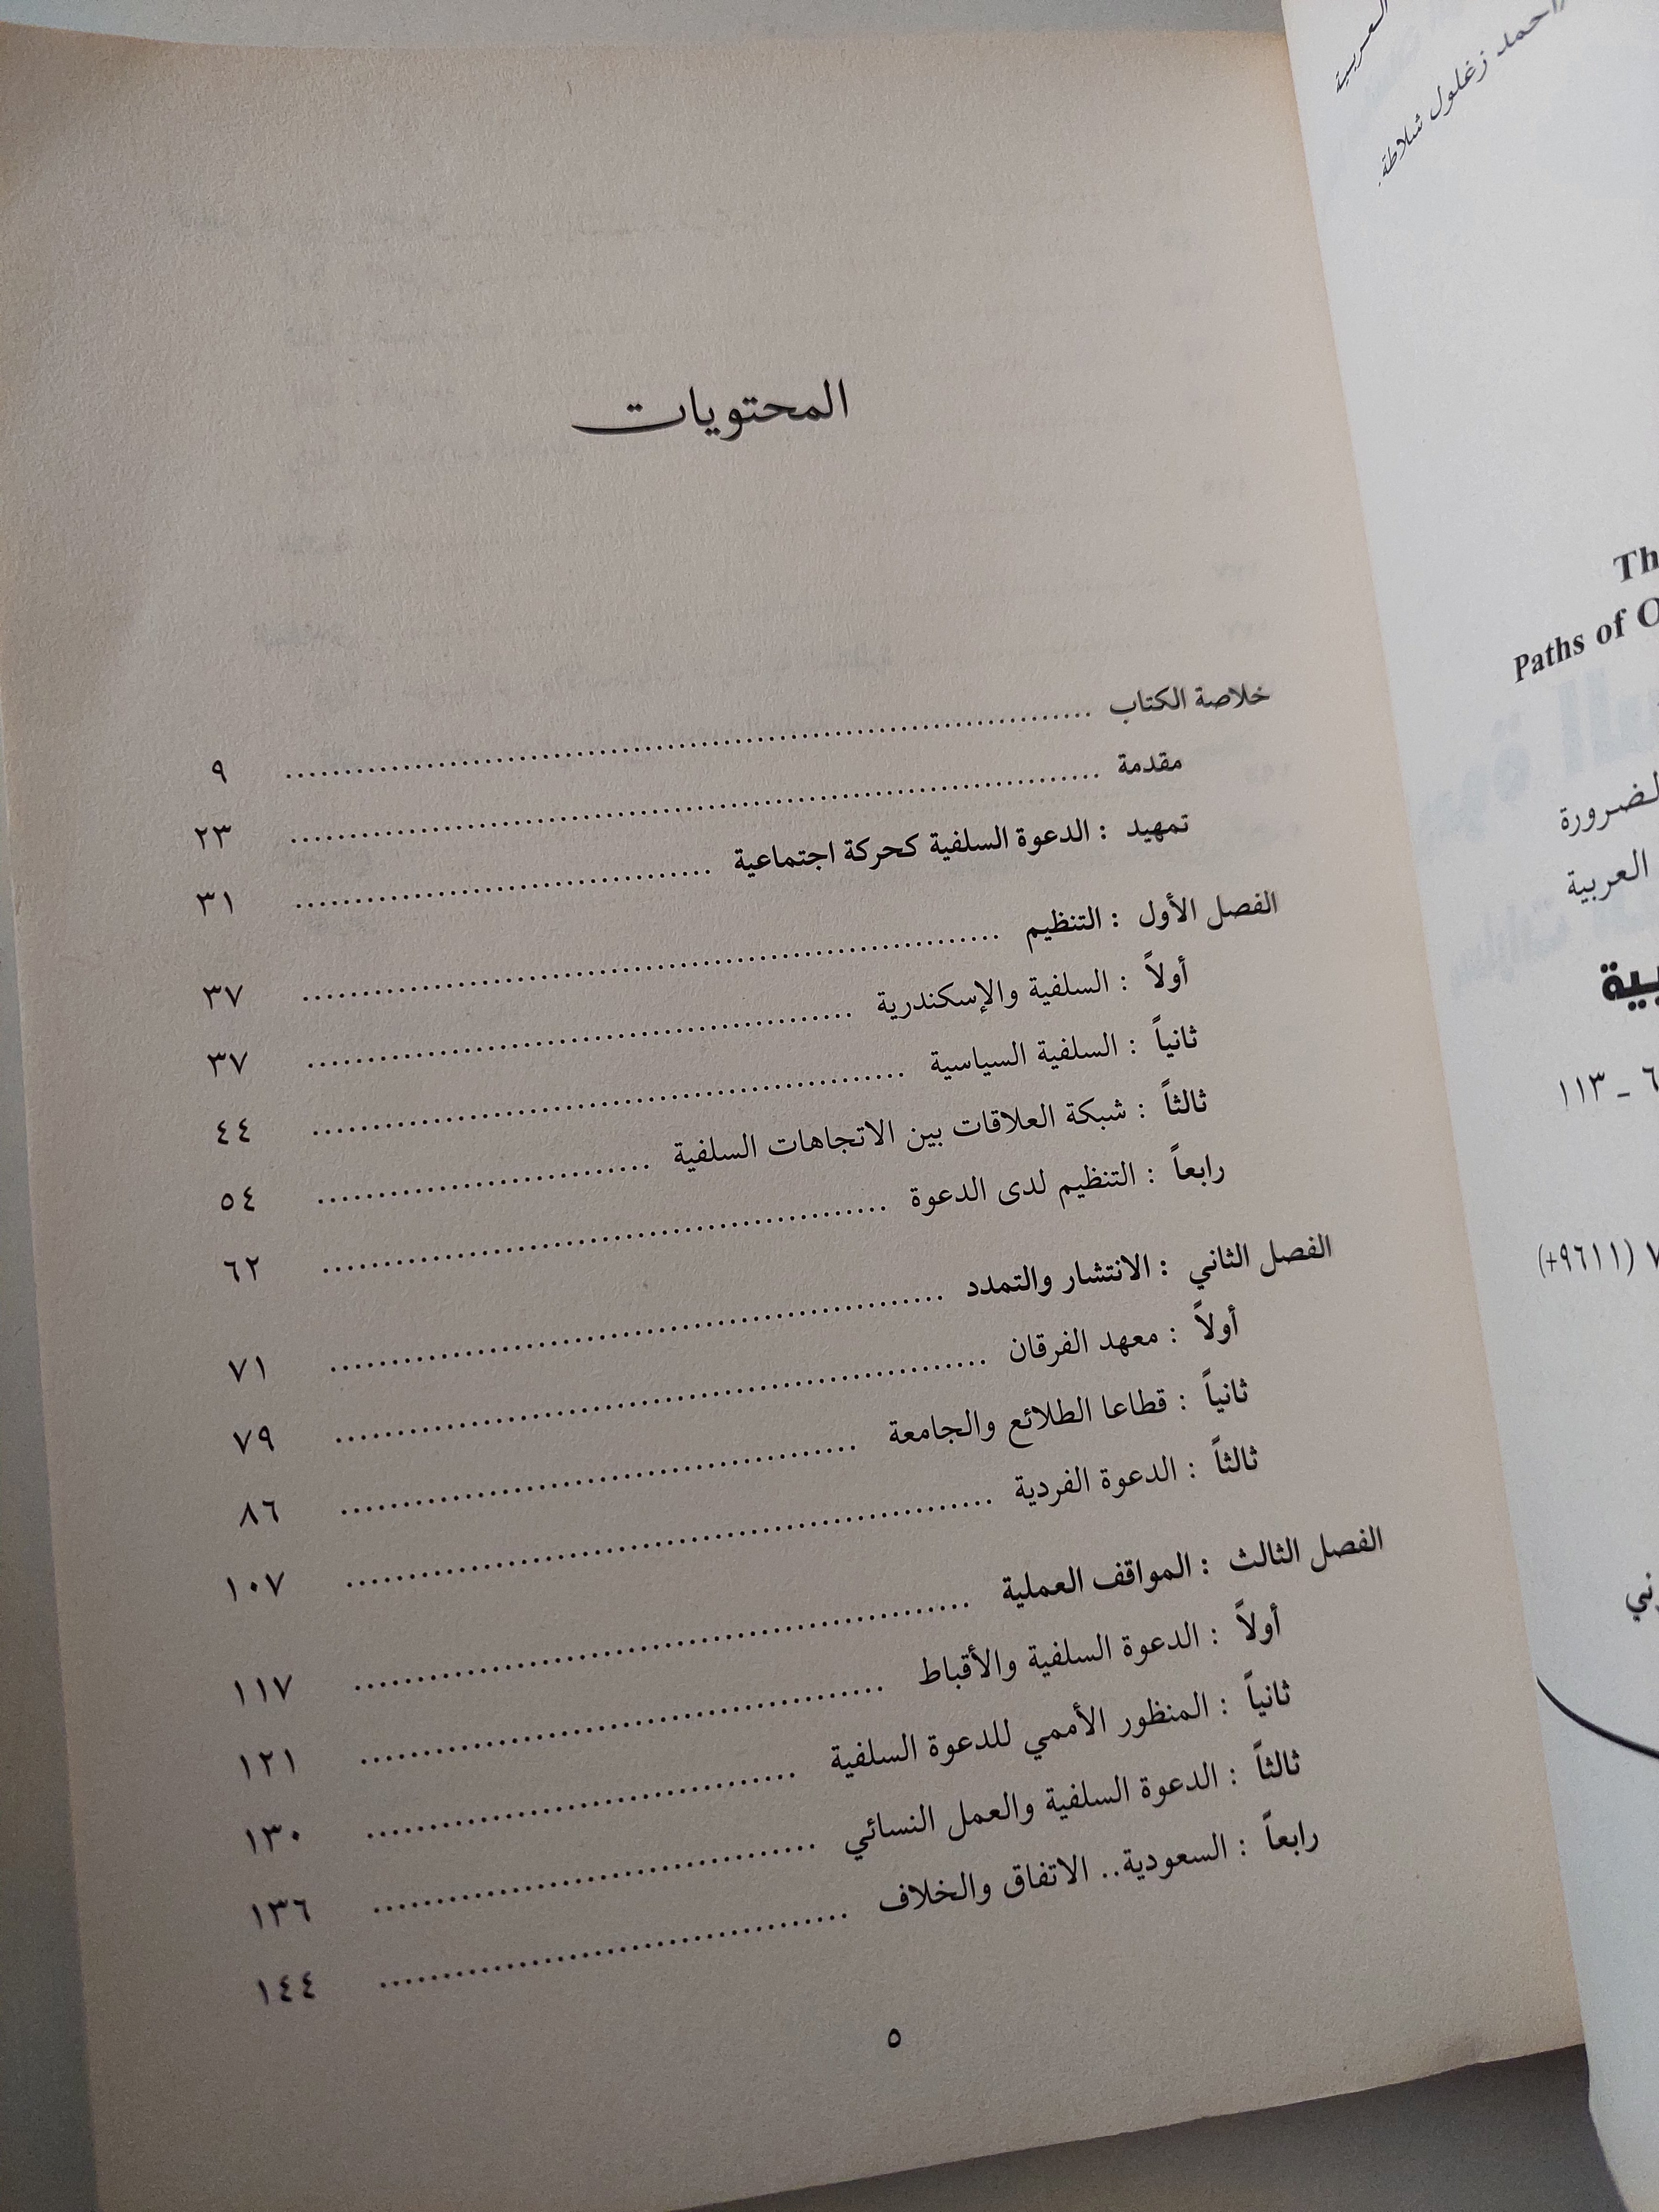 المحتويات
خلاصة الكتاب ........ ٩
مقدمة ........ ٢٣
تمهيد : الدعوة السلفية كحركة اجتماعية ........ ٣١
الفصل الأول : التنظيم ........ ٣٧
أولاً : السلفية والإسكندرية ........ ٣٧
ثانياً : السلفية السياسية ........ ٤٤
ثالثاً : شبكة العلاقات بين الاتجاهات السلفية ........ ٥٤
رابعاً : التنظيم لدى الدعوة ........ ٦٢
الفصل الثاني : الانتشار والتمدد ........ ٧١
أولاً : معهد الفرقان ........ ٧٩
ثانياً : قطاعا الطلائع والجامعة ........ ٨٦
ثالثاً : الدعوة الفردية ........ ١٠٧
الفصل الثالث : المواقف العملية ........ ١١٧
أولاً : الدعوة السلفية والأقباط ........ ١٢١
ثانياً : المنظور الأممي للدعوة السلفية ........ ١٣٠
ثالثاً : الدعوة السلفية والعمل النسائي ........ ١٣٦
رابعاً : السعودية.. الاتفاق والخلاف ........ ١٤٤
٥
العربية
أحمد زغلول شلاطة.
Th
Paths of O
لضرورة
العربية
بية
٦ – ١١٣
٧ (٩٦١١+)